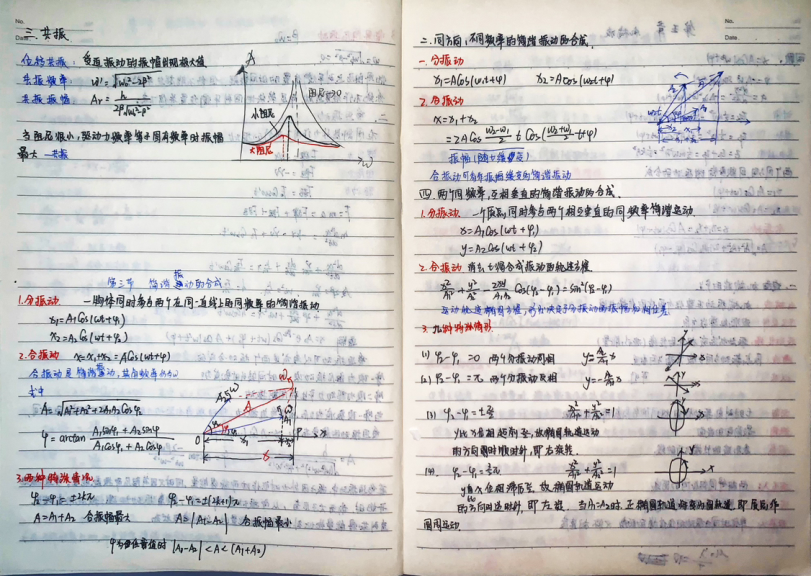 No.
Date.
三.共振
位移共振: 受迫振动的振幅出现极大值
共振频率 ω'=√(ω₀²-2β²)
共振振幅 Ar = h/(2β√(ω₀²-β²))
A
阻尼→0
小阻尼
大阻尼
当阻尼很小,驱动力频率等于固有频率时振幅
最大 —共振
第三节 简谐振动的合成
1.分振动 一个物体同时参与两个在同一直线上的同频率的简谐振动
x₁=A₁Cos(ωt+φ₁)
x₂=A₂Cos(ωt+φ₂)
2.合振动 x=x₁+x₂=ACos(ωt+φ)
合振动是简谐振动,其角频率仍为ω
式中
A=√(A₁²+A₂²+2A₁A₂Cosφ)
φ=arctan (A₁sinφ₁+A₂sinφ₂)/(A₁Cosφ₁+A₂Cosφ₂)
3.两种特殊情况
φ₂-φ₁=±2kπ φ₂-φ₁=±(2k+1)π
A=A₁+A₂ 合振幅最大 A=|A₁-A₂| 合振幅最小
φ为其他值时 |A₁-A₂|<A<(A₁+A₂)
No.
Date.
二.同方向,不同频率的简谐振动的合成.
一.分振动
x₁=ACos(ω₁t+φ) x₂=ACos(ω₂t+φ)
2.合振动
x=x₁+x₂
=2ACos (ω₂-ω₁)/2 t Cos((ω₂+ω₁)/2 t+φ)
合振动可看作振幅缓变的简谐振动
四.两个同频率,互相垂直的简谐振动的合成.
1.分振动 一个质点同时参与两个相互垂直的同频率简谐运动
x=A₁Cos(ωt+φ₁)
y=A₂Cos(ωt+φ₂)
2.合振动 消去t得合成振动的轨迹方程
x²/A₁²+y²/A₂²-2xy/A₁A₂ Cos(φ₂-φ₁)=sin²(φ₂-φ₁)
3.几种特殊情形
(1) φ₂-φ₁=0 两个分振动同相 y=A₂/A₁ x
(2) φ₂-φ₁=π 两个分振动反相 y=-A₂/A₁ x
(3) φ₂-φ₁=+π/2 x²/A₁²+y²/A₂²=1
的方向顺时针,即右旋转.
(4) φ₂-φ₁=-π/2 x²/A₁²+y²/A₂²=1
的方向逆时针,即左旋. 当A₁=A₂时,正椭圆轨道将变为圆轨迹,即质点作
圆周运动.